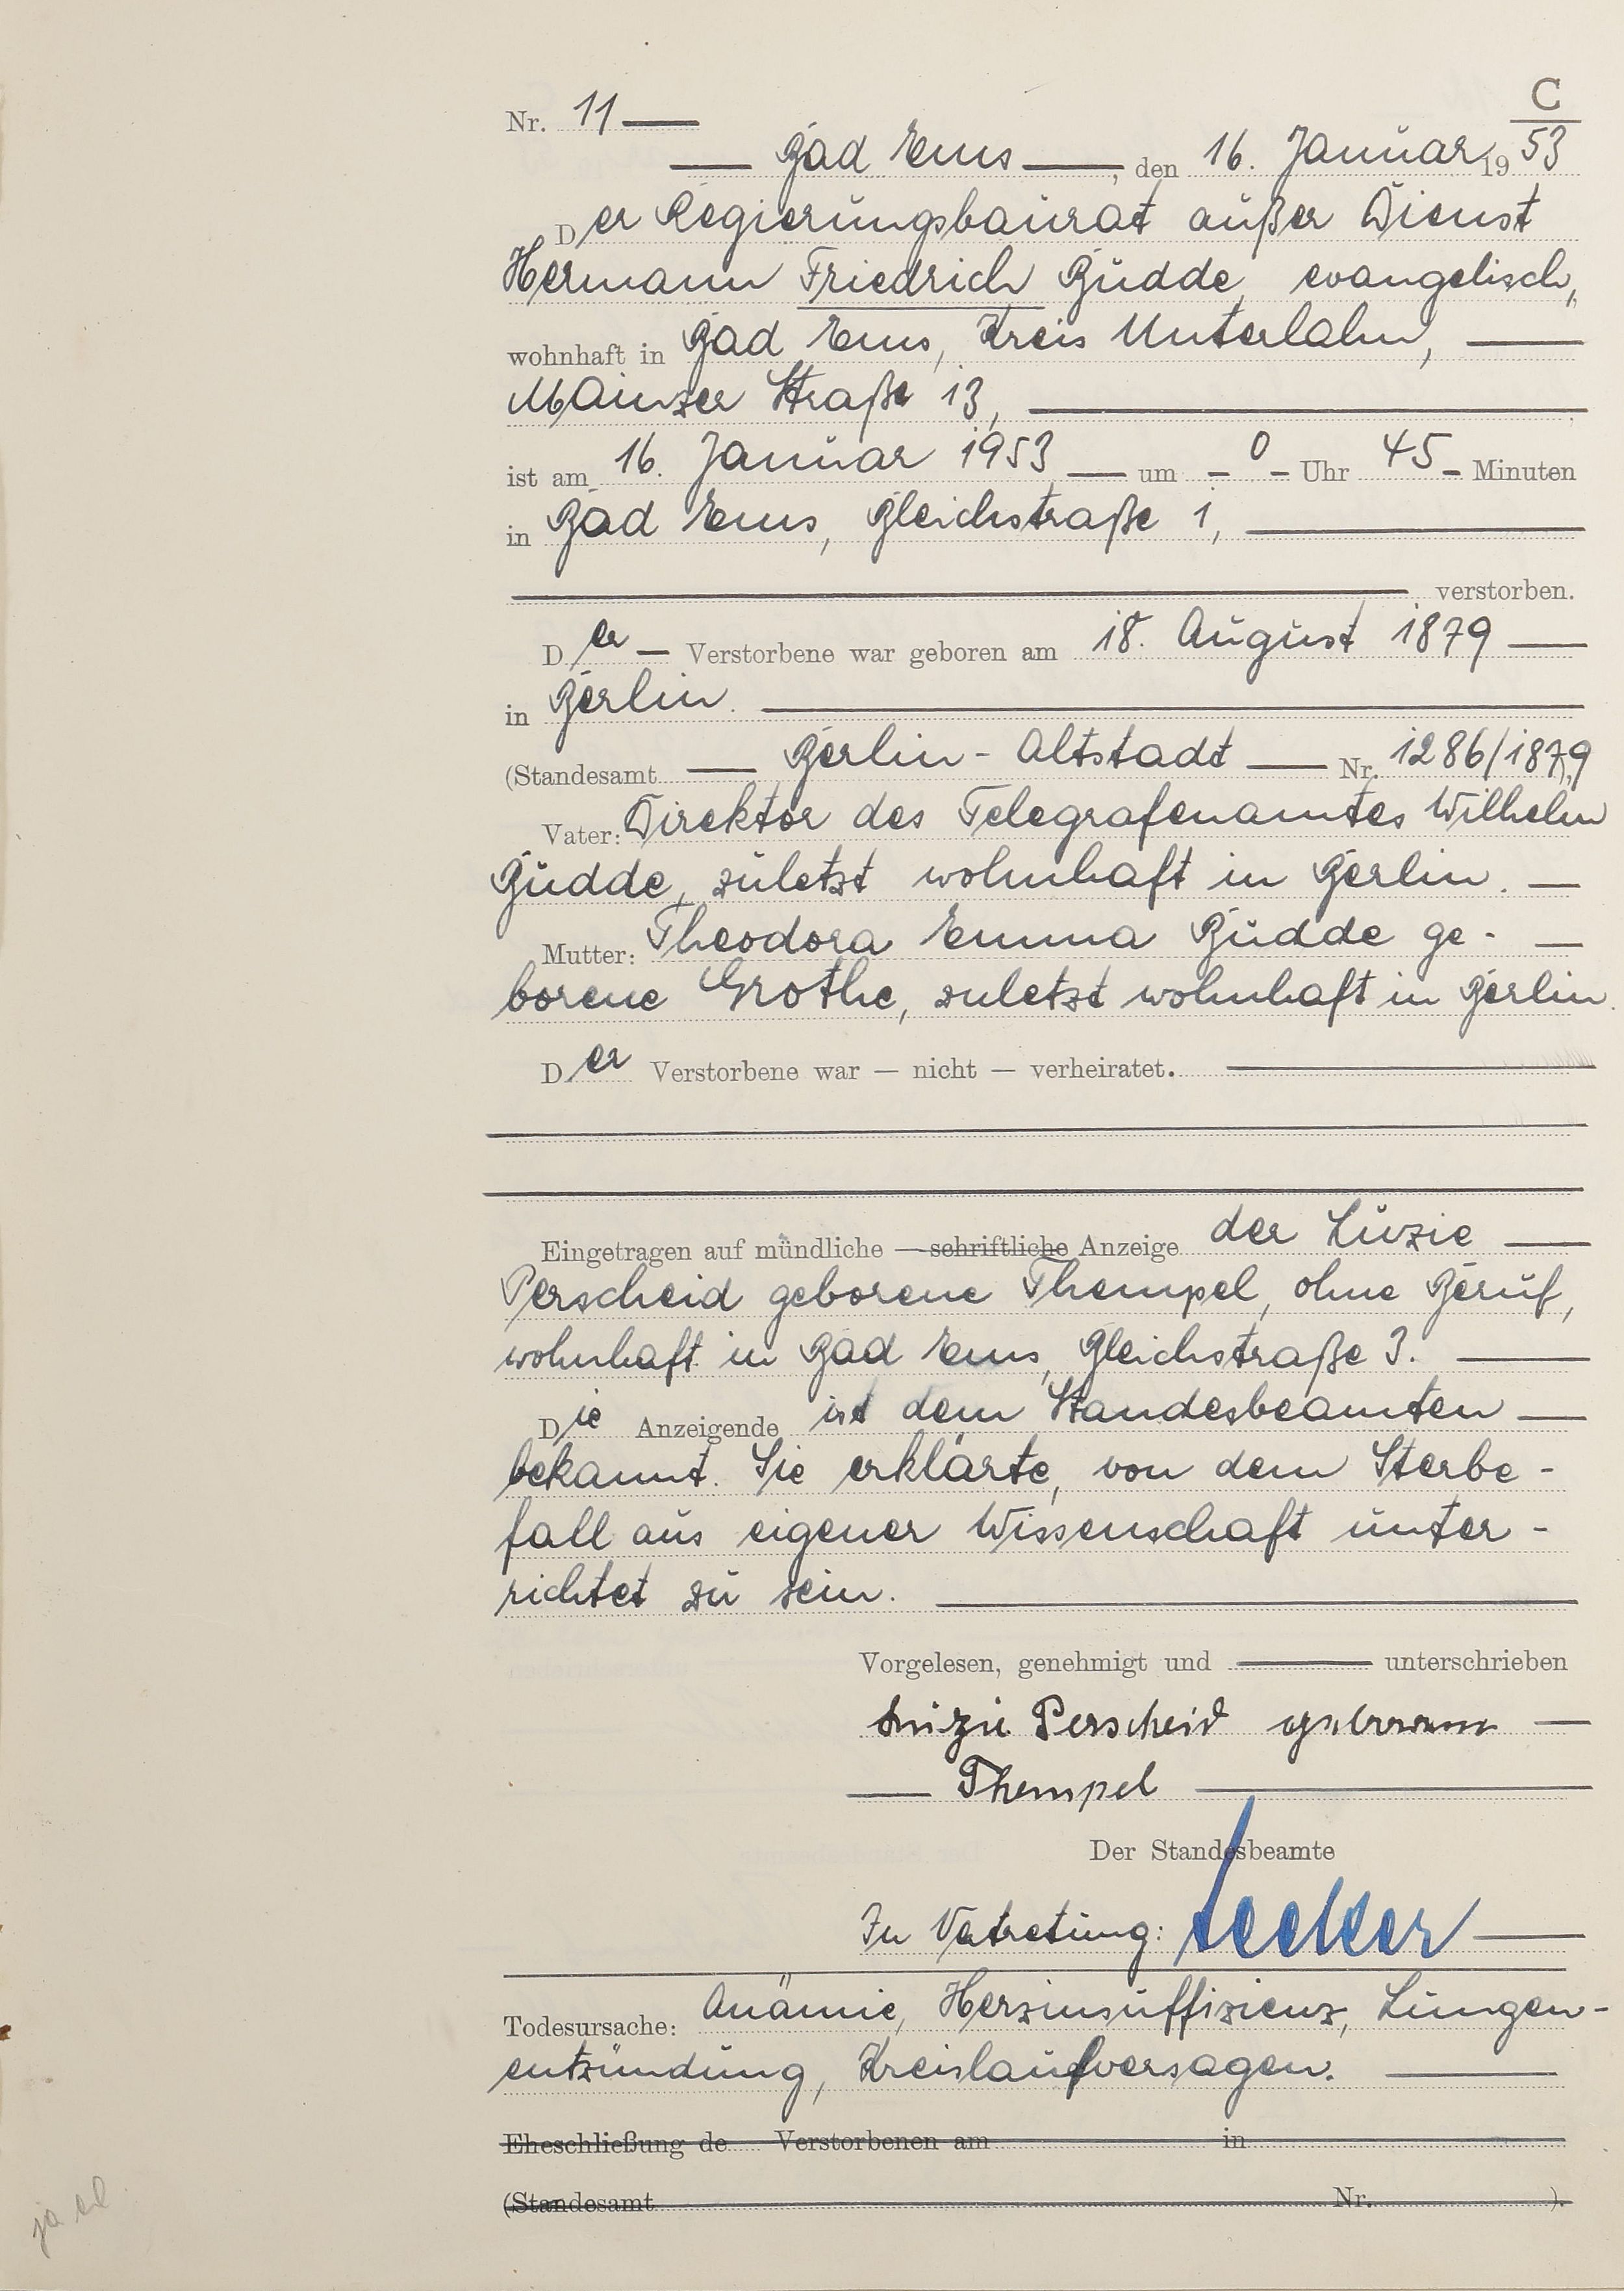 C
Nr. 11
Bad Ems, den 16. Januar 1953
Der Regierungsbaurat außer Dienst
Hermann Friedrich Budde, evangelisch,
wohnhaft in Bad Ems, Kreis Unterlahn,
Mainzer Straße 13,
ist am 16. Januar 1953 um - 0 - Uhr 45 - Minuten
in Bad Ems, Bleichstraße 1,
verstorben.
Der Verstorbene war geboren am 18. August 1879
in Berlin.
(Standesamt Berlin-Altstadt Nr. 1286/1879).
Vater: Direktor des Telegrafenamtes Wilhelm
Budde, zuletzt wohnhaft in Berlin.
Mutter: Theodora Emma Budde ge-
borene Grothe, zuletzt wohnhaft in Berlin.
Der Verstorbene war — nicht — verheiratet.
Eingetragen auf mündliche — schriftliche Anzeige der Luzie
Perscheid geborene Thempel, ohne Beruf,
wohnhaft in Bad Ems, Bleichstraße 3.
Die Anzeigende ist dem Standesbeamten
bekannt. Sie erklärte, von dem Sterbe-
fall aus eigener Wissenschaft unter-
richtet zu sein.
Vorgelesen, genehmigt und unterschrieben
Luzie Perscheid geborene
Thempel
Der Standesbeamte
In Vertretung:
Todesursache: Anämie, Herzinsuffizienz, Lungen-
entzündung, Kreislaufversagen.
Eheschließung de Verstorbenen am in
(Standesamt Nr. ).